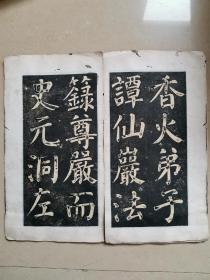 香火弟子
譚仙巖法
籙尊嚴而
史元洞左